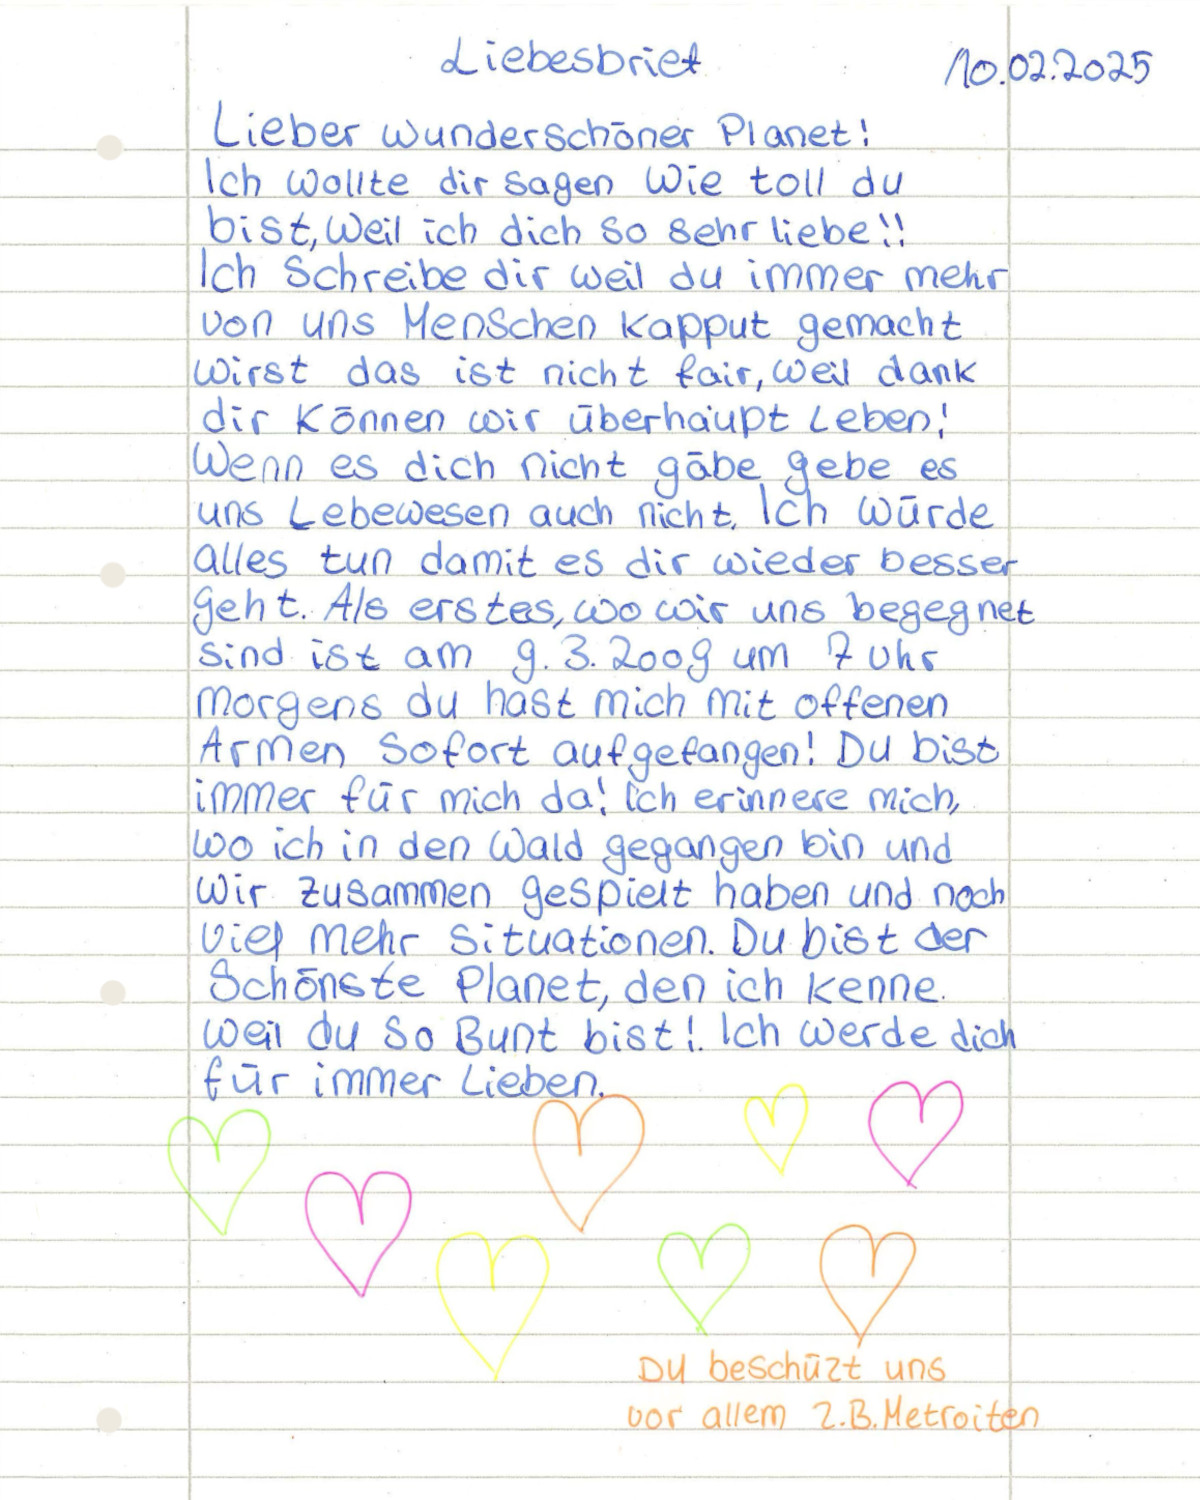 Liebesbrief
10.02.2025
Lieber wunderschöner Planet!
Ich wollte dir sagen wie toll du
bist, weil ich dich so sehr liebe!!
Ich schreibe dir weil du immer mehr
von uns Menschen kapput gemacht
wirst das ist nicht fair, weil dank
dir können wir überhaupt Leben!
Wenn es dich nicht gäbe gebe es
uns Lebewesen auch nicht. Ich würde
alles tun damit es dir wieder besser
geht. Als erstes, wo wir uns begegnet
sind ist am 9.3.2009 um 7 uhr
morgens du hast mich mit offenen
Armen sofort aufgefangen! Du bist
immer für mich da! Ich erinnere mich,
wo ich in den Wald gegangen bin und
wir zusammen gespielt haben und noch
viel mehr situationen. Du bist der
Schönste Planet, den ich kenne.
weil du so Bunt bist!. Ich werde dich
für immer Lieben.
Du beschüzt uns
vor allem z.B. Metroiten